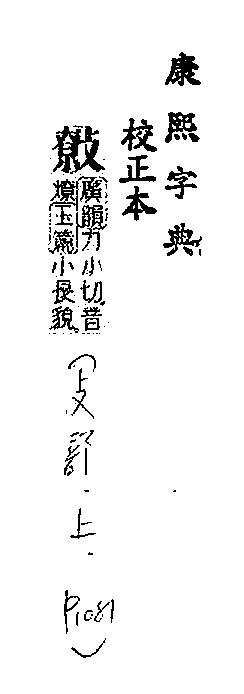 康熙字典
校正本
廣韻力小切音
燎玉篇小長貌
部.上.P1081)